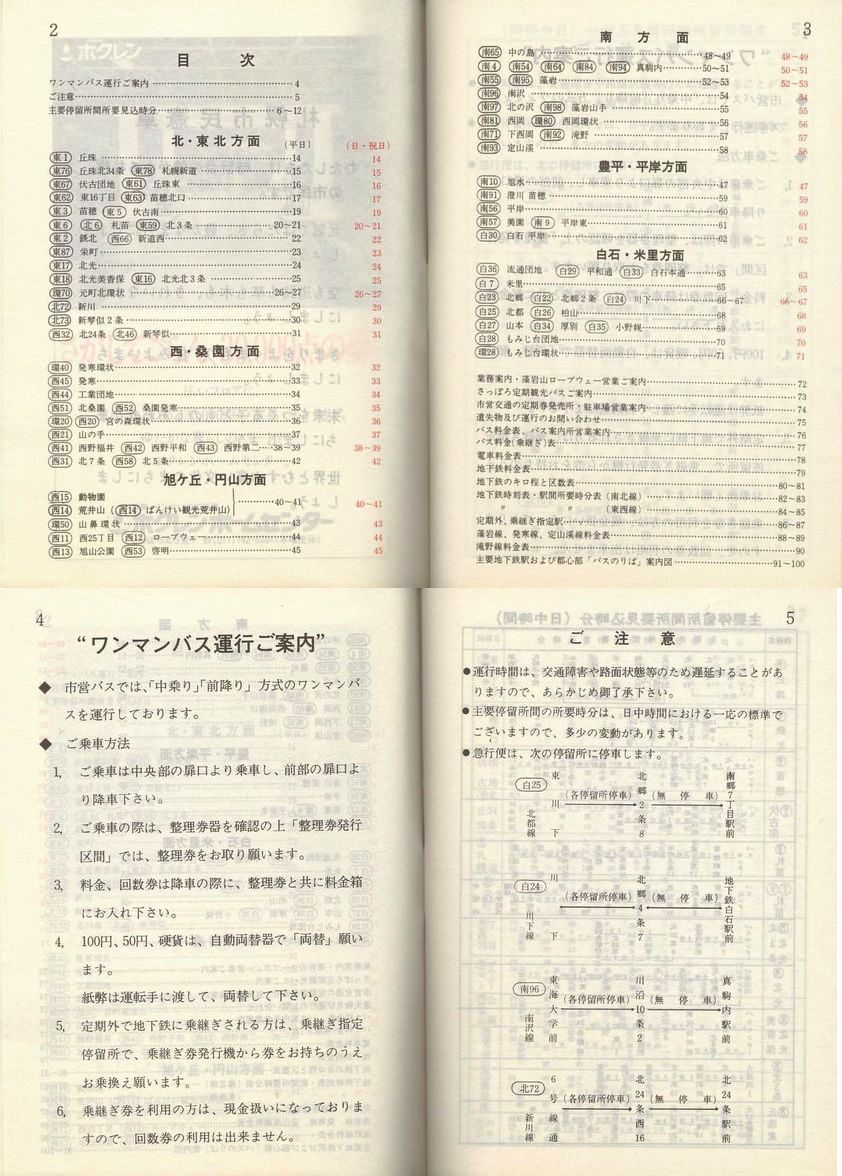 2
目 次
ワンマンバス運行ご案内 4
ご注意 5
主要停留所間所要見込時分 6~12
北・東北方面 (平日) (日・祝日)
東1 丘珠 14 14
東76 丘珠北34条 東78 札幌新道 15 15
東67 伏古団地 東61 丘珠東 16 16
東62 東16丁目 東63 苗穂北口 17 17
東3 苗穂 東5 伏古南 19 19
東6 北6 札苗 東59 北3条 20~21 20~21
東2 鉄北 西66 新道西 22 22
東87 栄町 23 23
東17 北光 24 24
東18 北光美香保 東16 北光北3条 25 25
環70 元町北環状 26~27 26~27
北72 新川 29 29
北73 新琴似2条 30 30
西32 北24条 北46 新琴似 31 31
西・桑園方面
環40 発寒環状 32 32
西45 発寒 33 33
西44 工業団地 34 34
西51 北桑園 西52 桑園発寒 35 35
環20 西20 宮の森環状 36 36
西21 山の手 37 37
西41 西野福井 西42 西野平和 西43 西野第二 38~39 38~39
西31 北7条 西58 北5条 42 42
旭ケ丘・円山方面
西15 動物園
西14 荒井山(西14 ばんけい観光荒井山) 40~41 40~41
環50 山鼻環状 43 43
西11 西25丁目 西12 ロープウェー 44 44
西13 旭山公園 西53 啓明 45 45
3
南方面
南65 中の島 48~49 48~49
南4 南54 南64 南84 南94 真駒内 50~51 50~51
南55 南95 藻岩 52~53 52~53
南96 南沢 54 54
南97 北の沢 南98 藻岩山手 55 55
南81 西岡 環80 西岡環状 56 56
南71 下西岡 南92 滝野 57 57
南93 定山渓 58 58
豊平・平岸方面
南10 旭水 47 47
南91 澄川 苗穂 59 59
南56 平岸 60 60
南57 美園 南9 平岸東 61 61
白30 白石 平岸 62 62
白石・米里方面
白36 流通団地 白29 平和通 白33 白石本通 63 63
白7 米里 65 65
白23 北郷 白22 北郷2条 白24 川下 66~67 66~67
白25 北都 白26 柏山 68 68
白27 山本 白34 厚別 白35 小野幌 69 69
白28 もみじ台団地 70 70
環28 もみじ台環状 71 71
業務案内・藻岩山ロープウェー営業ご案内 72
さっぽろ定期観光バスご案内 73
市営交通の定期券発売所・駐車場営業案内 74
遺失物及び運行のお問い合わせ 75
バス料金表、バス案内所営業案内 76
バス料金(乗継ぎ)表 77
電車料金表 78
地下鉄料金表 79
地下鉄のキロ程と区数表 80~81
地下鉄時刻表・駅間所要時分表(南北線) 82~83
〃 〃 (東西線) 84~85
定期外、乗継ぎ指定駅 86~87
藻岩線、発寒線、定山渓線料金表 88~89
滝野線料金表 90
主要地下鉄駅および都心部「バスのりば」案内図 91~100
4
“ワンマンバス運行ご案内”
◆ 市営バスでは、「中乗り」「前降り」方式のワンマンバ
スを運行しております。
◆ ご乗車方法
1, ご乗車は中央部の扉口より乗車し、前部の扉口よ
り降車下さい。
2, ご乗車の際は、整理券器を確認の上「整理券発行
区間」では、整理券をお取り願います。
3, 料金、回数券は降車の際に、整理券と共に料金箱
にお入れ下さい。
4, 100円、50円、硬貨は、自動両替器で「両替」願い
ます。
紙弊は運転手に渡して、両替して下さい。
5, 定期外で地下鉄に乗継ぎされる方は、乗継ぎ指定
停留所で、乗継ぎ券発行機から券をお持ちのうえ
お乗換え願います。
6, 乗継ぎ券を利用の方は、現金扱いになっておりま
すので、回数券の利用は出来ません。
5
ご注意
●運行時間は、交通障害や路面状態等のため遅延することがあ
りますので、あらかじめ御了承下さい。
●主要停留所間の所要時分は、日中時間における一応の標準で
ございますので、多少の変動があります。
●急行便は、次の停留所に停車します。
白25 北都線
東川下 (各停留所停車) 北郷2条8 (無停車) 南郷7丁目駅前
白24 川下線
川下 (各停留所停車) 北郷4条7 (無停車) 地下鉄白石駅前
南96 南沢線
東海大学前 (各停留所停車) 川沿10条2 (無停車) 真駒内駅前
北72 新川線
6号線通 (各停留所停車) 北24条西16 (無停車) 北24条駅前